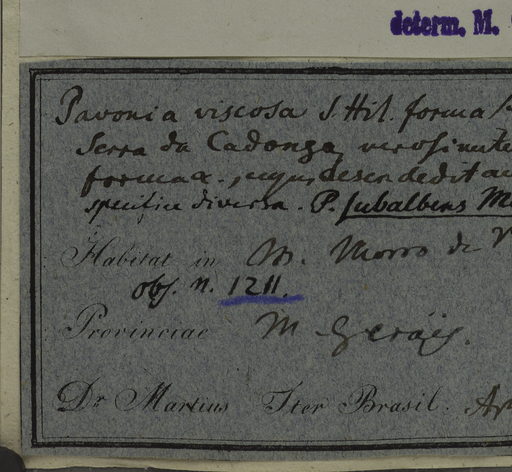 determ. M.
Pavonia viscosa S Hil. forma
Serra da Cadonga,
forma a.
specifice diversa. P. subalbens
Habitat in M. Morro de
obs. n. 1211.
Provinciae M. Geraës.
Dr Martius Iter Brasil.